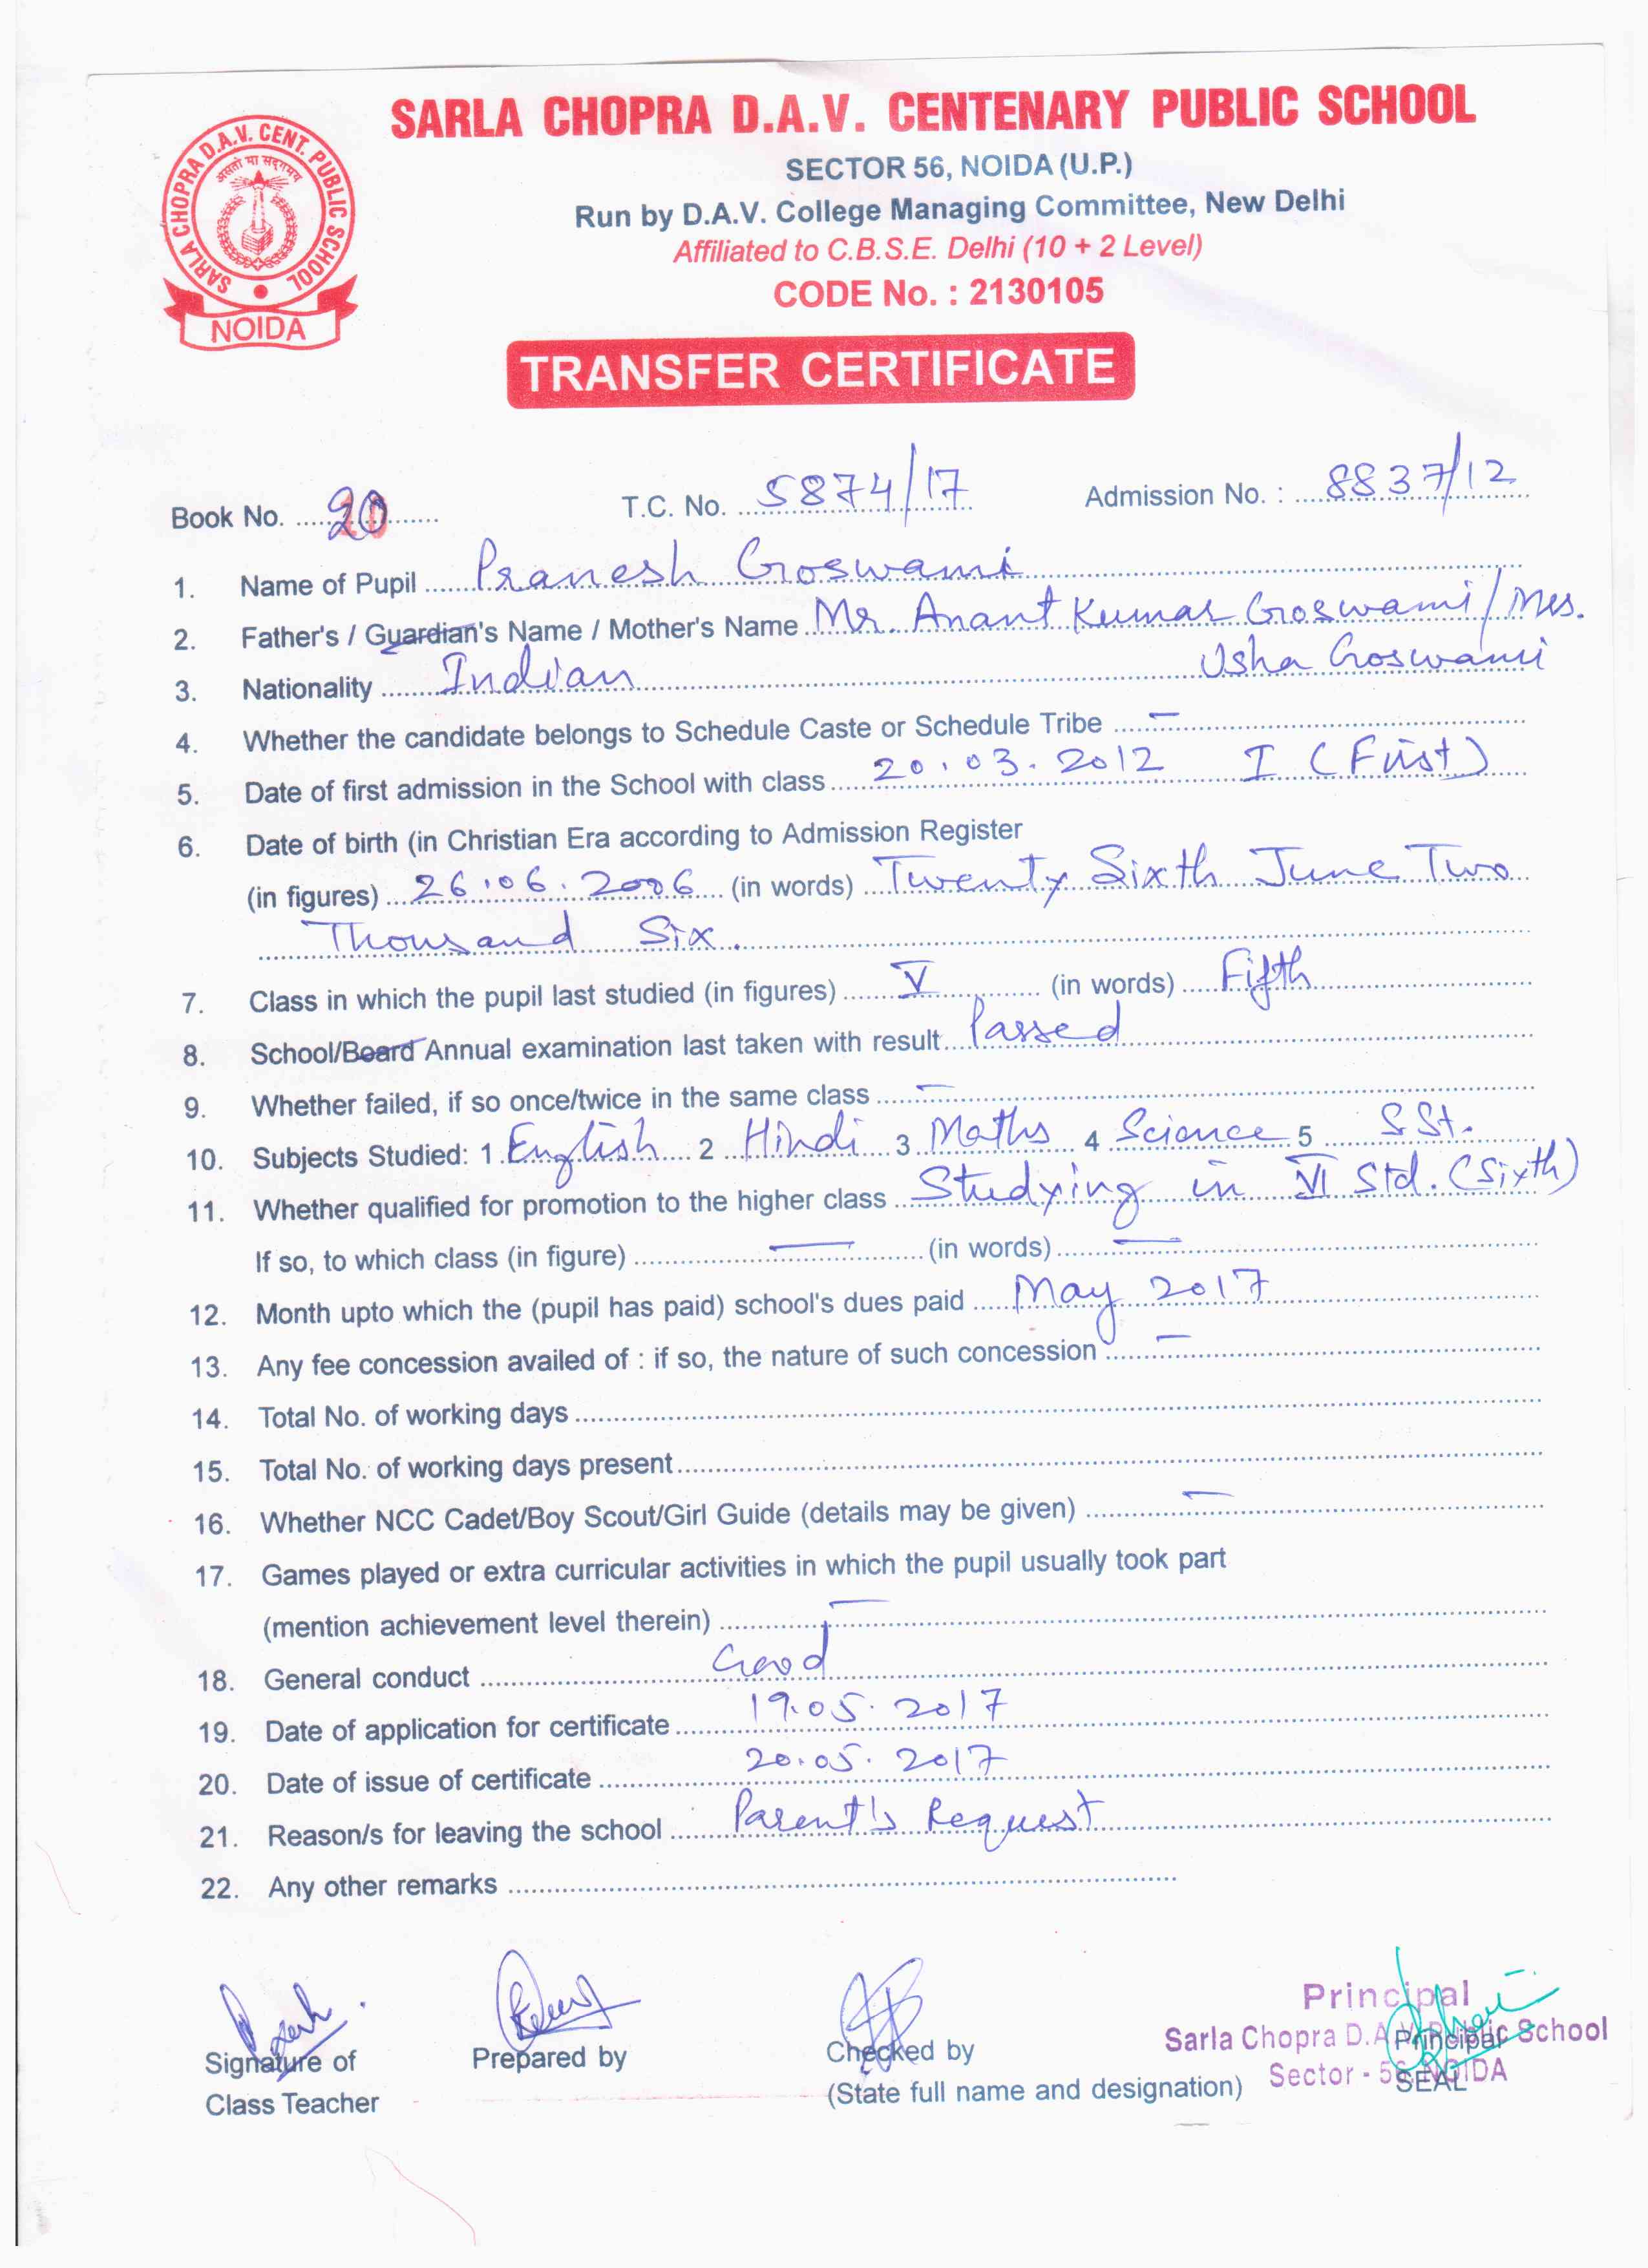 SARLA CHOPRA D.A.V. CENTENARY PUBLIC SCHOOL
SARLA CHOPRA D.A.V. CENT. PUBLIC SCHOOL
असतो मा सद्गमय
NOIDA
SECTOR 56, NOIDA (U.P.)
Run by D.A.V. College Managing Committee, New Delhi
Affiliated to C.B.S.E. Delhi (10 + 2 Level)
CODE No. : 2130105
TRANSFER CERTIFICATE
Book No. 20 T.C. No. 5874/17 Admission No. : 8837/12
1. Name of Pupil Pranesh Goswami
2. Father's / Guardian's Name / Mother's Name Mr. Anant Kumar Goswami / Mrs.
Usha Goswami
3. Nationality Indian
4. Whether the candidate belongs to Schedule Caste or Schedule Tribe —
5. Date of first admission in the School with class 20.03.2012 I (First)
6. Date of birth (in Christian Era according to Admission Register
(in figures) 26.06.2006 (in words) Twenty Sixth June Two
Thousand Six.
7. Class in which the pupil last studied (in figures) V (in words) Fifth
8. School/Board Annual examination last taken with result Passed
9. Whether failed, if so once/twice in the same class —
10. Subjects Studied: 1 English 2 Hindi 3 Maths 4 Science 5 S St.
11. Whether qualified for promotion to the higher class Studying in VI Std. (Sixth)
If so, to which class (in figure) — (in words) —
12. Month upto which the (pupil has paid) school's dues paid May 2017
13. Any fee concession availed of : if so, the nature of such concession —
14. Total No. of working days
15. Total No. of working days present
16. Whether NCC Cadet/Boy Scout/Girl Guide (details may be given) —
17. Games played or extra curricular activities in which the pupil usually took part
(mention achievement level therein) —
18. General conduct Good
19. Date of application for certificate 19.05.2017
20. Date of issue of certificate 20.05.2017
21. Reason/s for leaving the school Parent's Request
22. Any other remarks
Signature of
Class Teacher
Prepared by
Checked by
(State full name and designation)
Principal
Sarla Chopra D.A.V. Public School
Sector - 56, NOIDA
Principal
SEAL